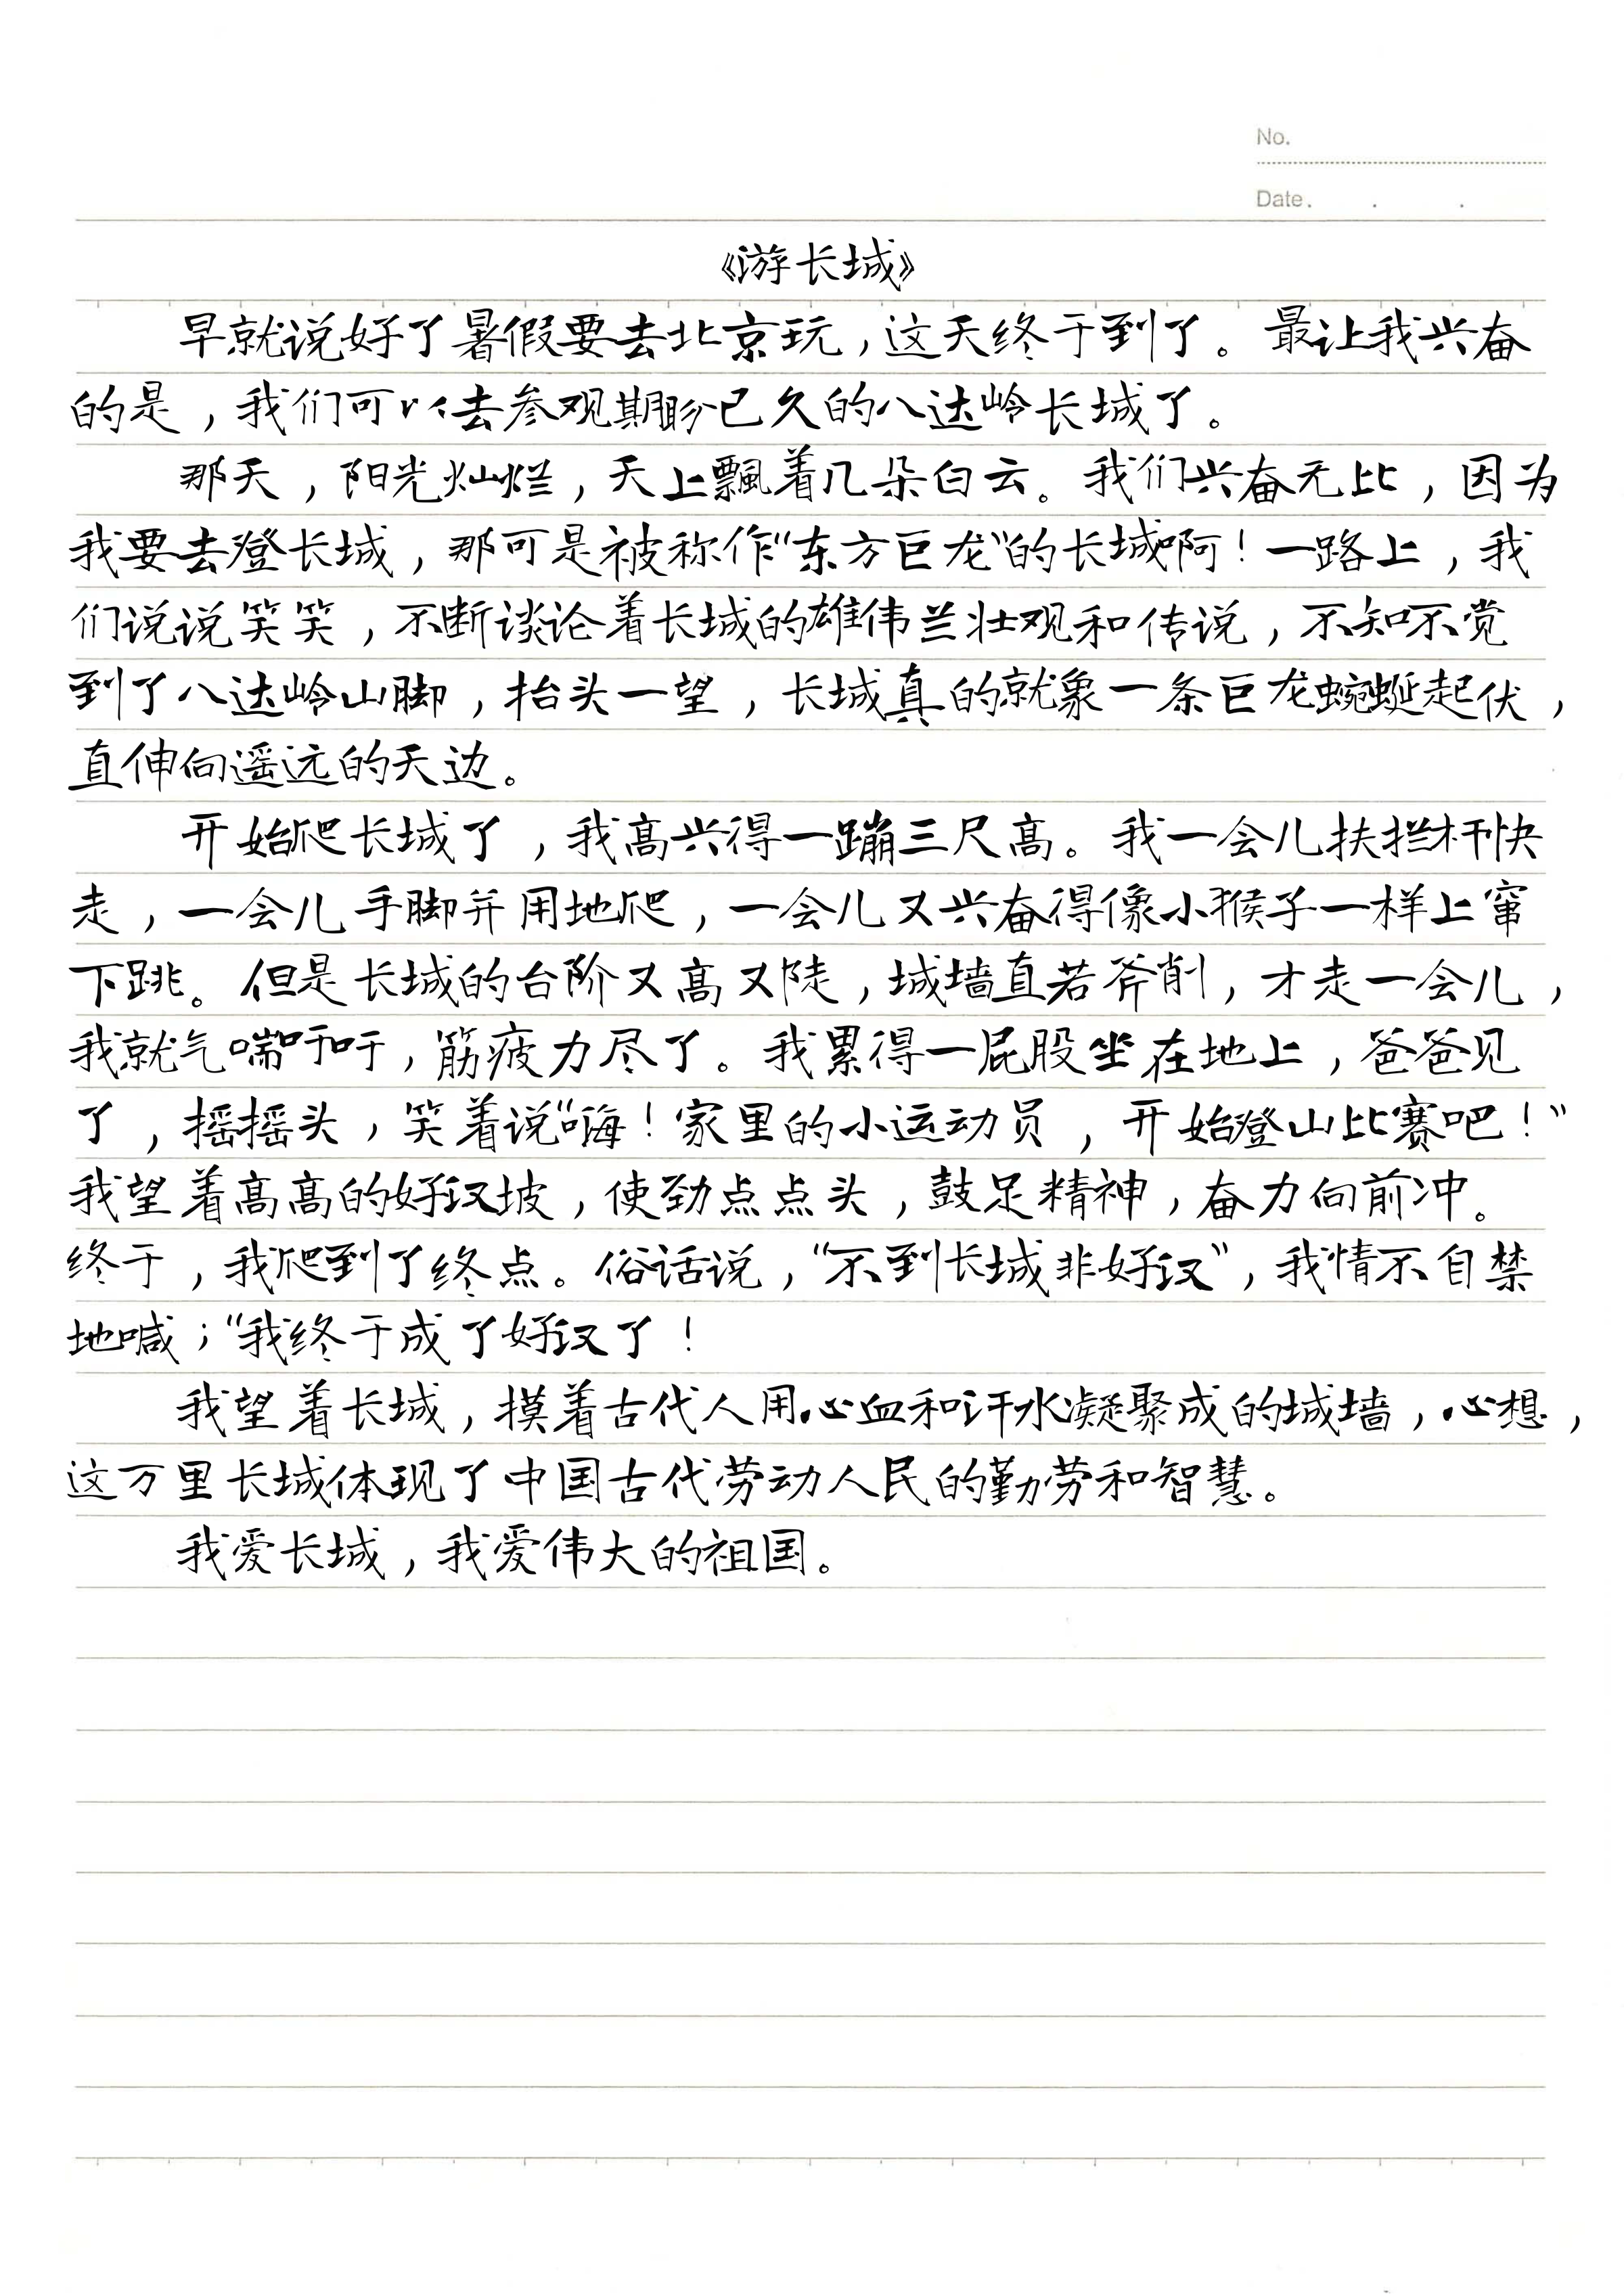 No.
Date.
《游长城》
早就说好了暑假要去北京玩，这天终于到了。最让我兴奋
的是，我们可以去参观期盼已久的八达岭长城了。
那天，阳光灿烂，天上飘着几朵白云。我们兴奋无比，因为
我要去登长城，那可是被称作“东方巨龙”的长城啊！一路上，我
们说说笑笑，不断谈论着长城的雄伟兰壮观和传说，不知不觉
到了八达岭山脚，抬头一望，长城真的就象一条巨龙蜿蜒起伏，
直伸向遥远的天边。
开始爬长城了，我高兴得一蹦三尺高。我一会儿扶拦杆快
走，一会儿手脚并用地爬，一会儿又兴奋得像小猴子一样上窜
下跳。但是长城的台阶又高又陡，城墙直若斧削，才走一会儿，
我就气喘吁吁，筋疲力尽了。我累得一屁股坐在地上，爸爸见
了，摇摇头，笑着说“嗨！家里的小运动员，开始登山比赛吧！”
我望着高高的好汉坡，使劲点点头，鼓足精神，奋力向前冲。
终于，我爬到了终点。俗话说，“不到长城非好汉”，我情不自禁
地喊；“我终于成了好汉了！
我望着长城，摸着古代人用心血和汗水凝聚成的城墙，心想，
这万里长城体现了中国古代劳动人民的勤劳和智慧。
我爱长城，我爱伟大的祖国。